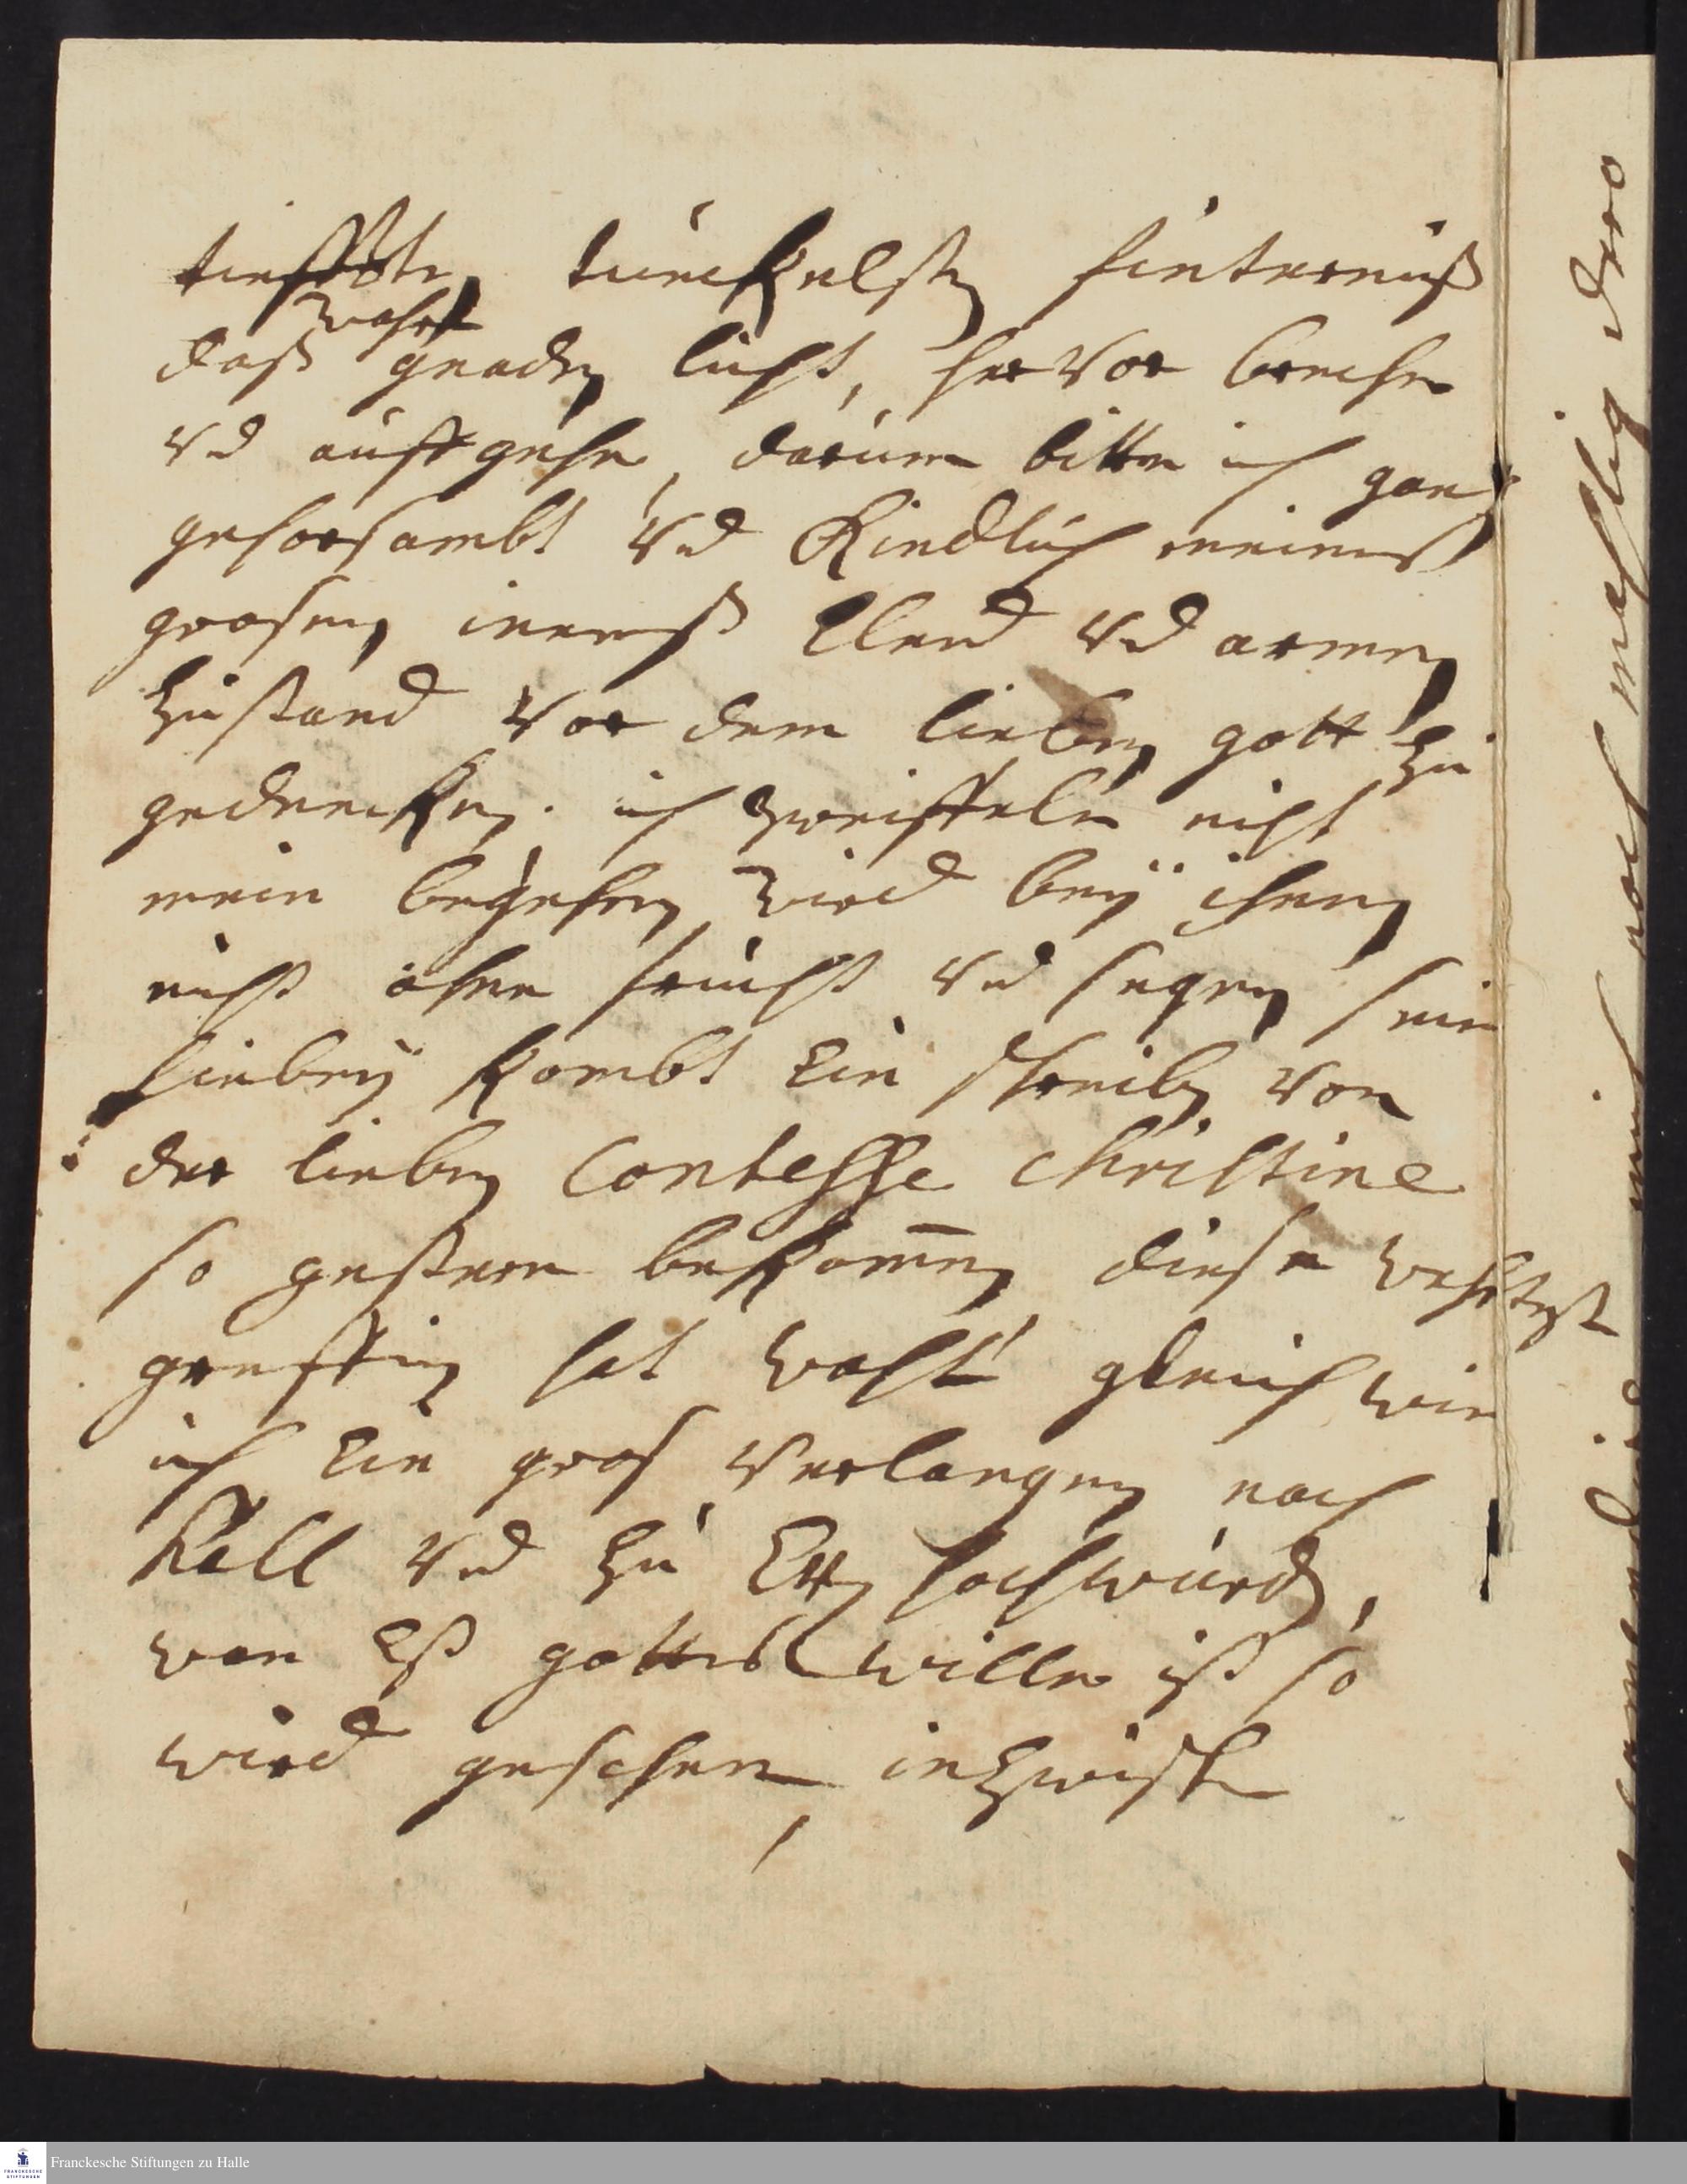 tieffste tunckelste finternuß
wahre
daß gnaden licht, hervor breche
vd auffgehe, darum bitte ich gantz
gehorsambt vnd Kindlich meines
grosen inerß Elend vnd armen
Zustand vor dem lieben gott zu
gedencken. ich zweiffele nicht
mein begehren wird bey ihnen
nicht ohne frucht vnd segen sein
hiebey kombt Ein schreiben von
der lieben Contesse Christine
so gestern bekomen, diese
greffin hat wohl gleich wie
ich Ein gros verlangen nach
hall vnd zu Ew hochwürd,
wan Eß gottes wille ist so
wird geschen, inzwische
Franckesche Stiftungen zu Halle